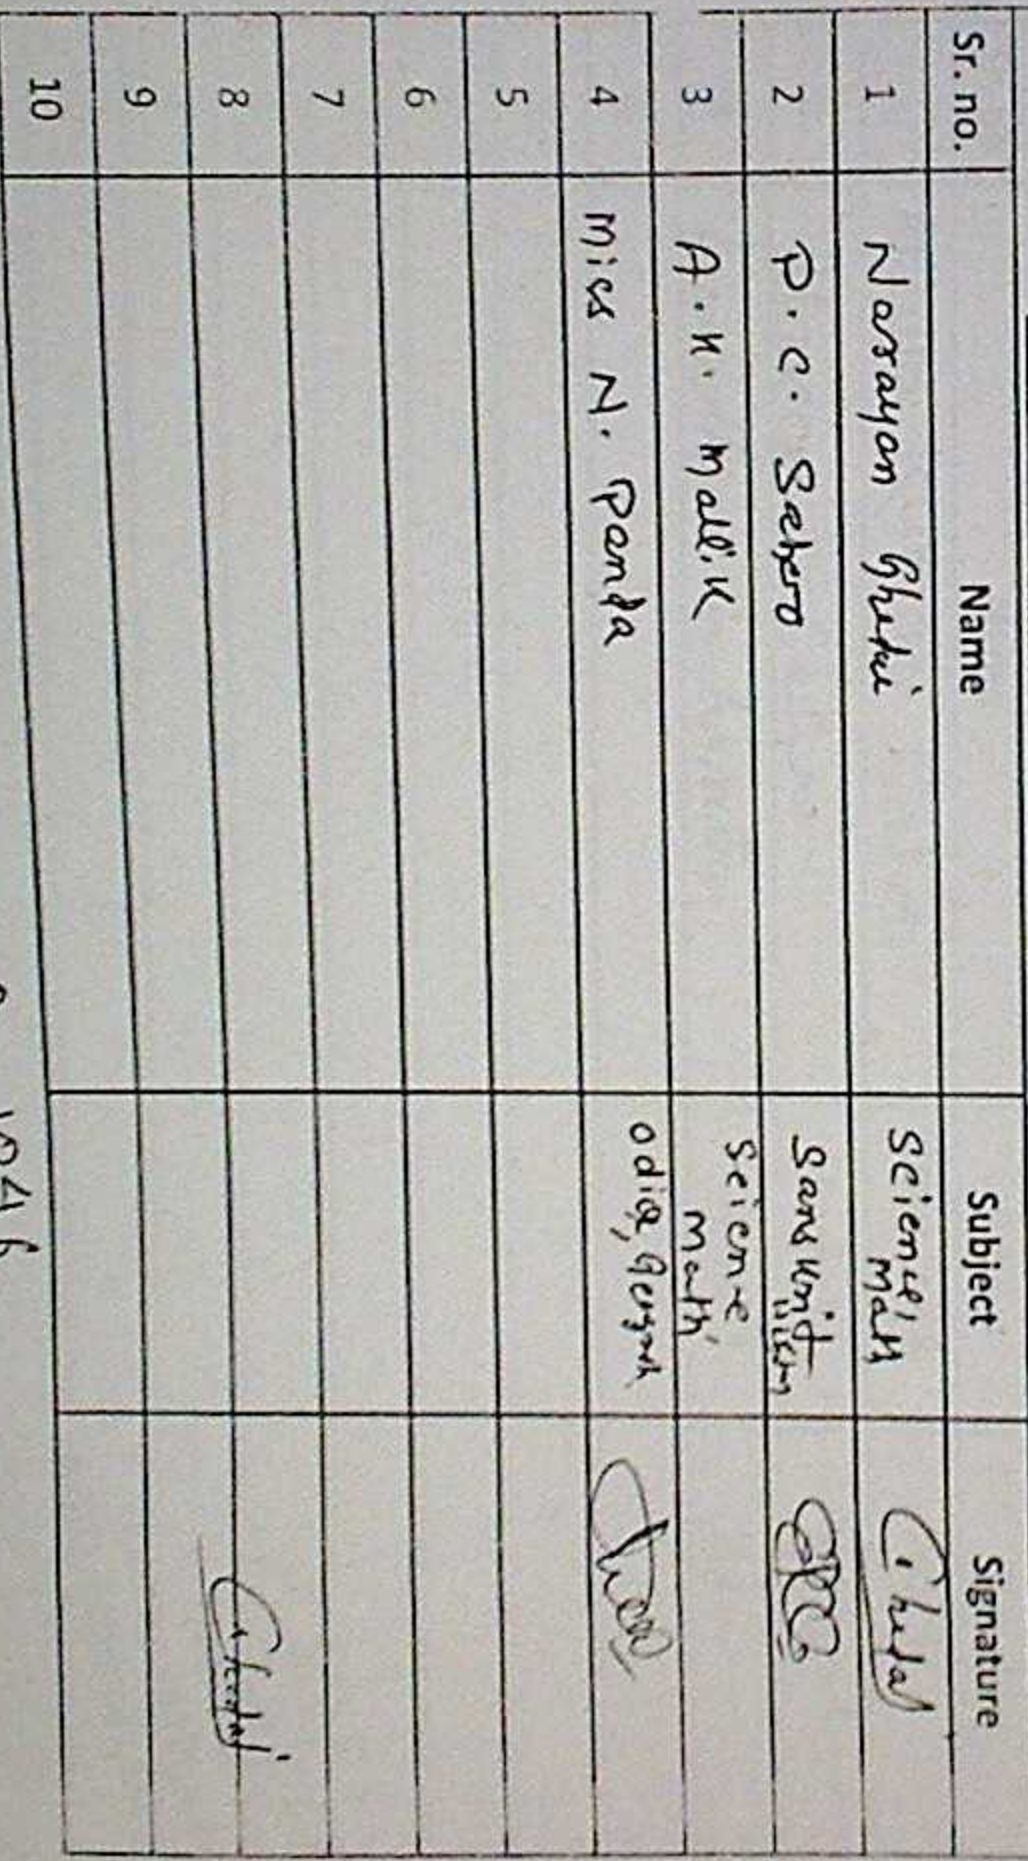 Sr. no. Name Subject Signature
1 Narayan Science, Math
2 P. C. Sahoo Sanskrit
3 A. K. Mallik Science Math
4 Miss N. Panda odia,
5
6
7
8
9
10